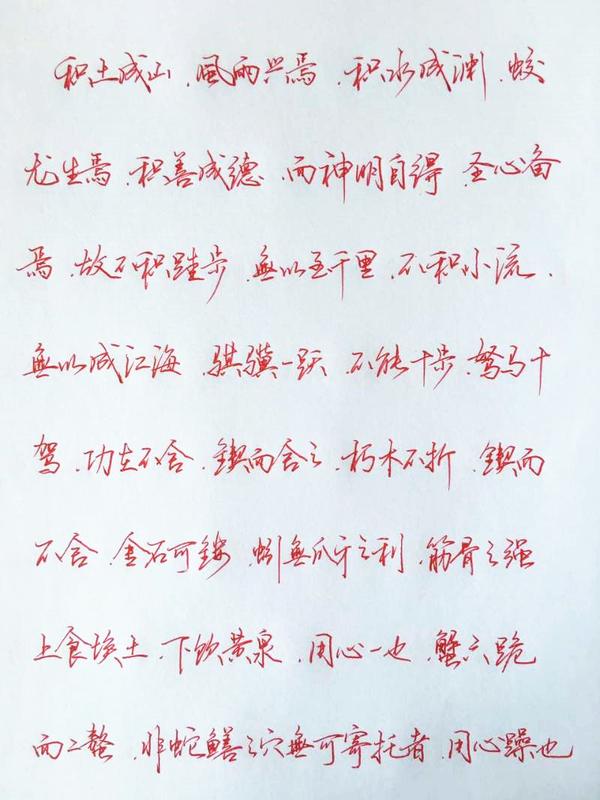 积土成山、風雨兴焉、积水成渊、蛟
龙生焉、积善成德、而神明自得、圣心备
焉、故不积跬步、無以至千里、不积小流、
無以成江海、骐骥一跃、不能十步、驽马十
驾、功在不舍、锲而舍之、朽木不折、锲而
不舍、金石可镂、蚓無爪牙之利、筋骨之强
上食埃土、下饮黄泉、用心一也、蟹六跪
而二螯、非蛇鳝之穴無可寄托者、用心躁也